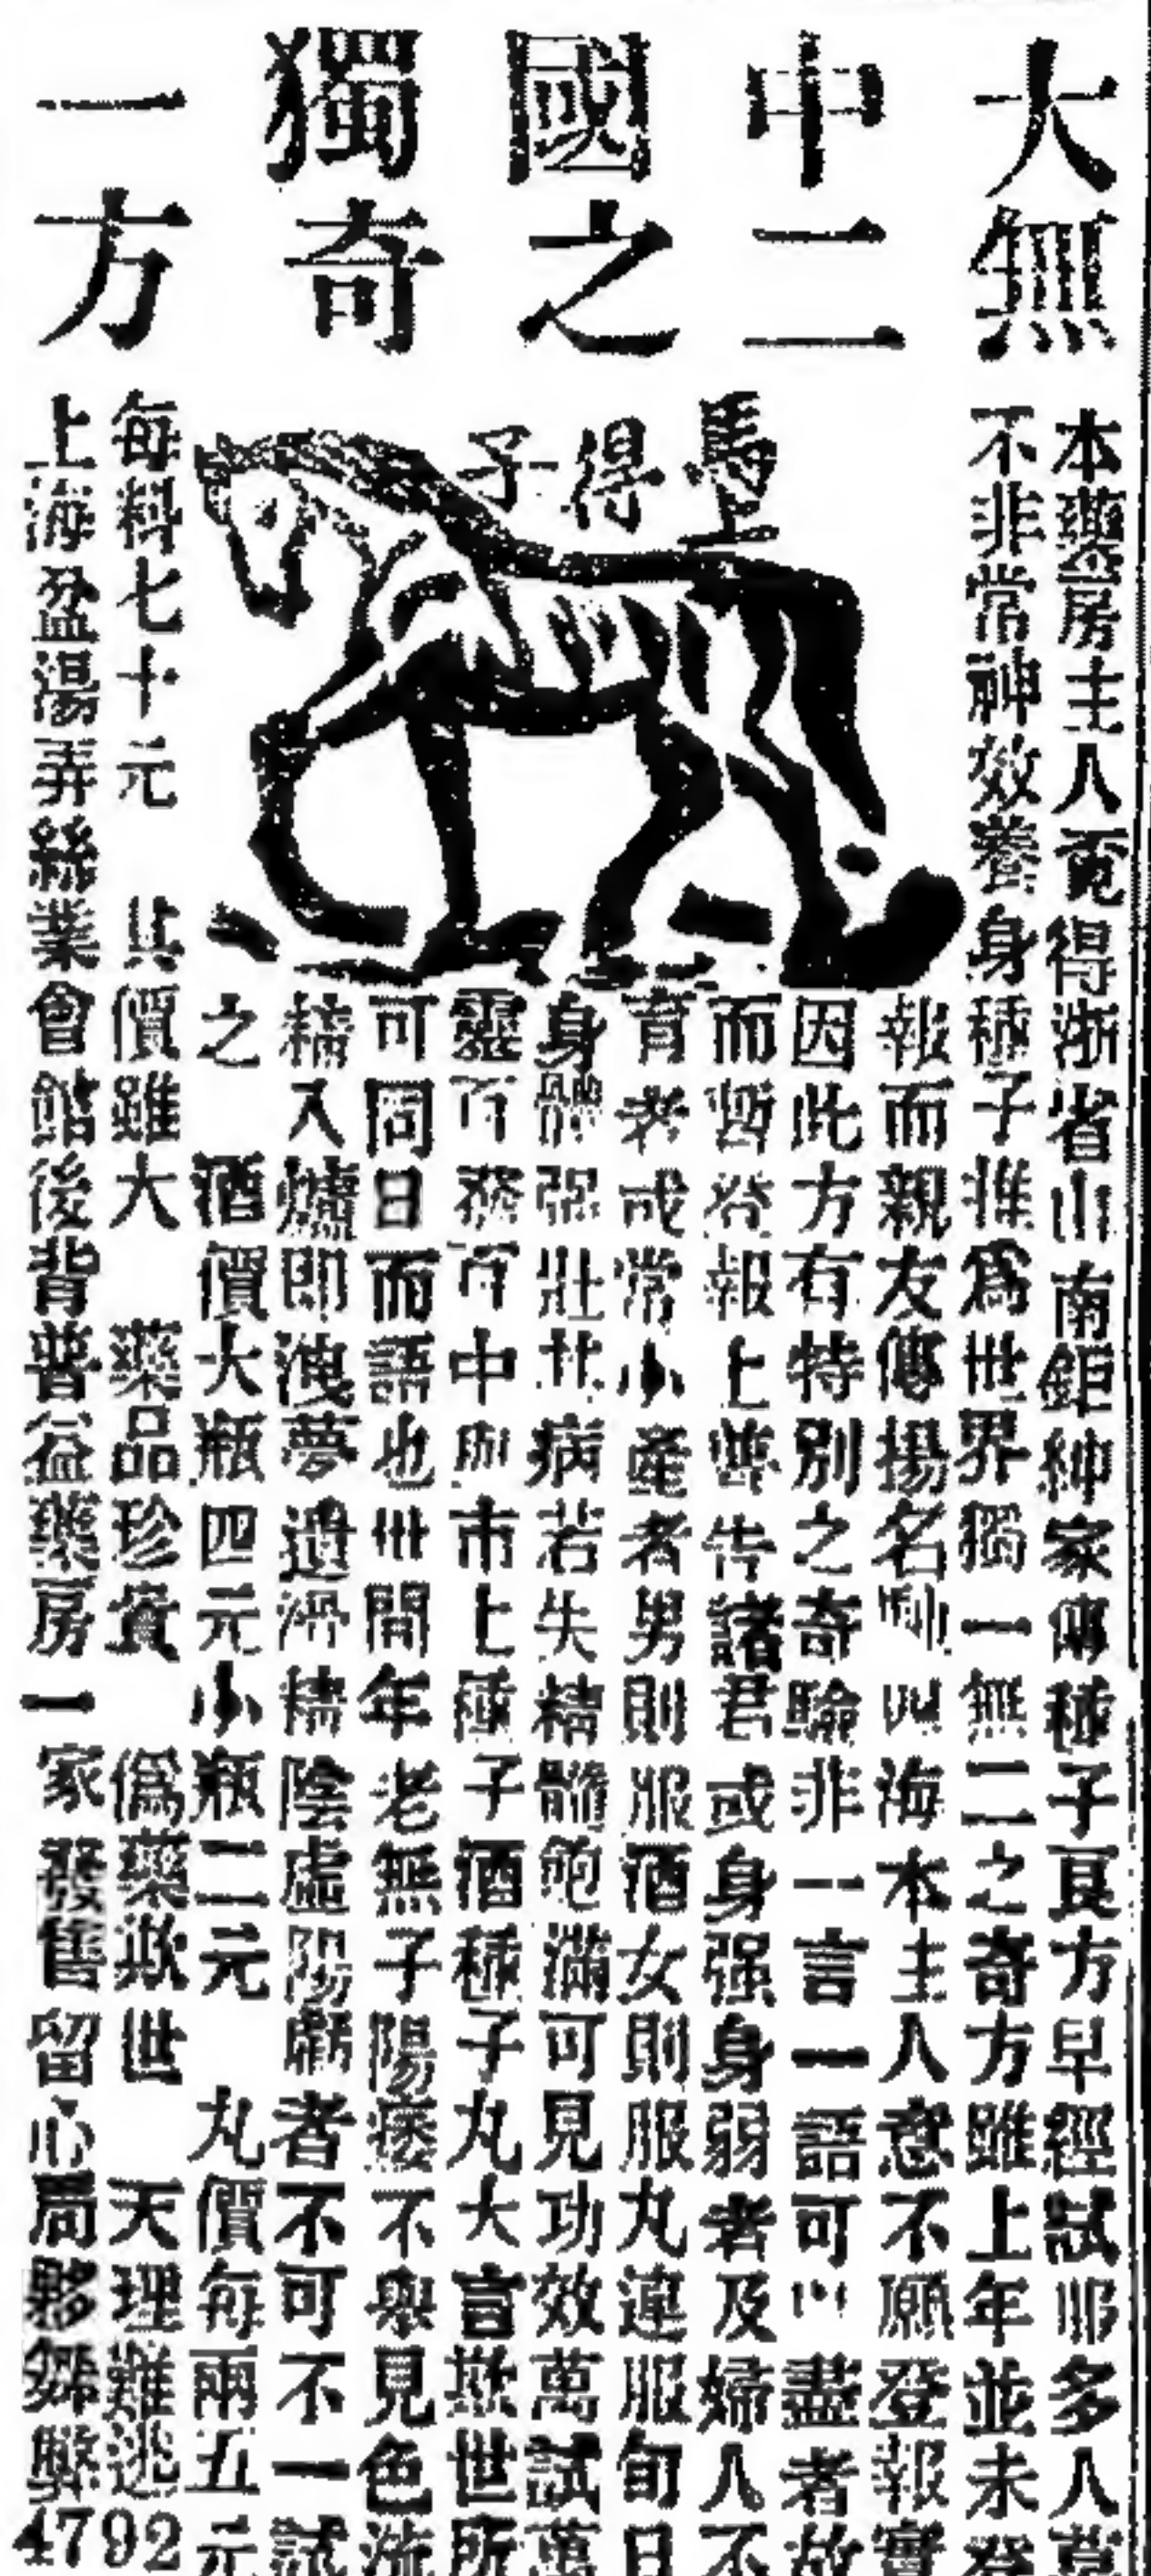 大中國之獨一
無二之奇方
馬上得子
本藥房主人覔得浙省山南鉅紳家傳種子良方早經試用多人莫
不非常神效養身種子推爲世界獨一無二之奇方雖上年並未登
報而親友傳揚名馳四海本主人意不願登報實
因此方有特別之奇騐非一言一語可以盡者故
而暫登報上警告諸君或身强身弱者及婦人不
育者或常小產者男則服酒女則服丸連服旬日
身體强壯其病若失精髓飽滿可見功效萬試萬
靈百發百中與市上種子酒種子丸大言欺世所
可同日而語也世間年老無子陽痿不舉見色流
精入爐即洩夢遺滑精陰虛陽虧者不可不一試
之 酒價大瓶四元小瓶二元 丸價每兩五元
每料七十元 其價雖大 藥品珍貴 僞藥欺世 天理難逃92
上海盆湯弄絲業會館後背普益藥房一家發售留心局夥舞弊47